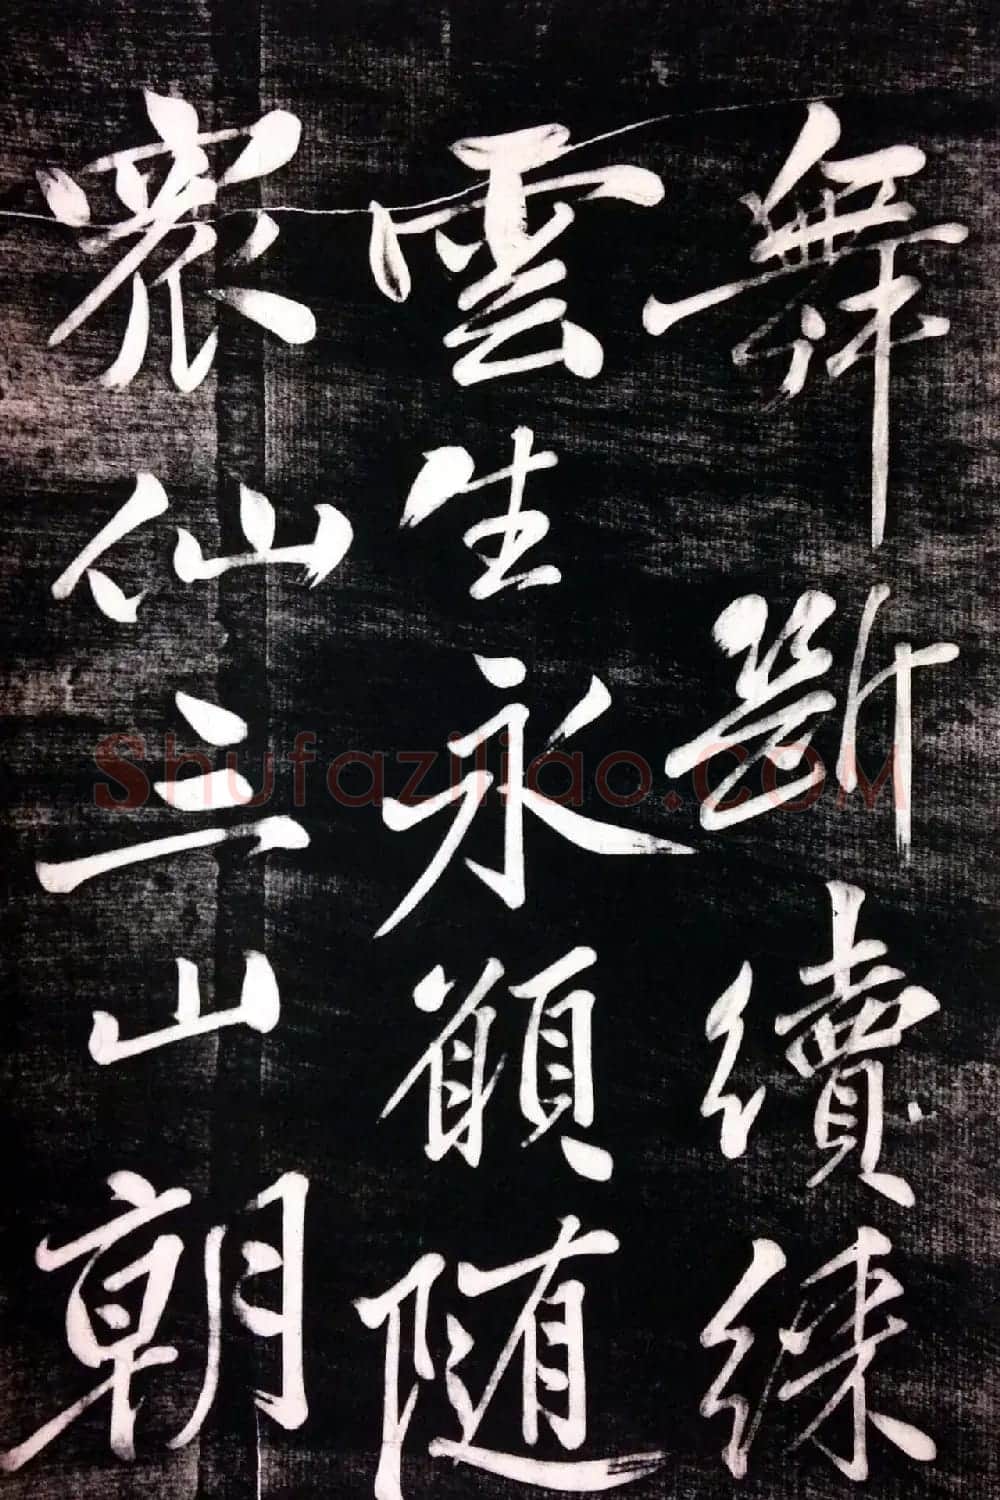 舞斷續綵
雲生永願随
衆仙三山朝
Shufaziliao.COM